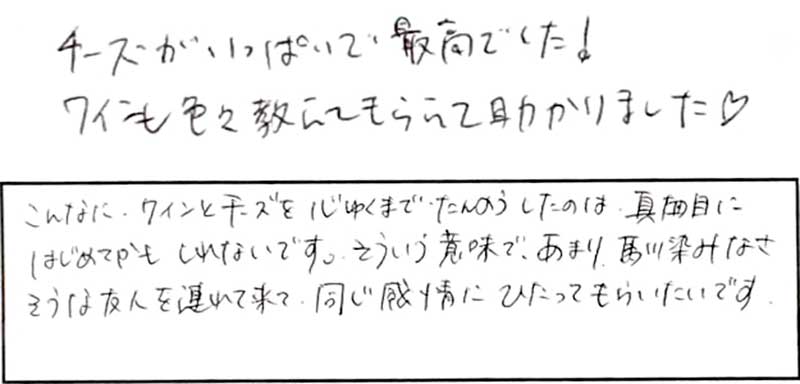 チーズがいっぱいで最高でした!
ワインも色々教えてもらえて助かりました♡
こんなに、ワインとチーズを心ゆくまでたんのうしたのは、真面目に
はじめてかもしれないです。そういう意味で、あまり馴染みなさ
そうな友人を連れて来て、同じ感情にひたってもらいたいです。